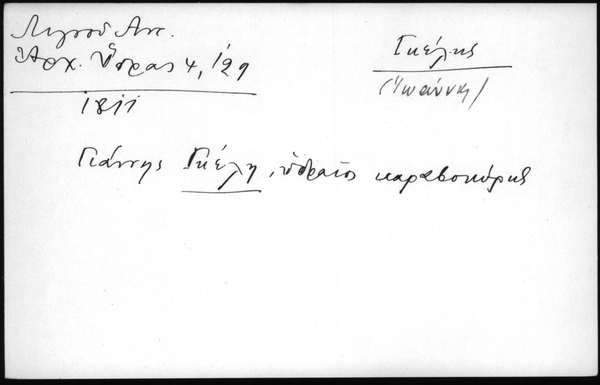 Λιγνού Αντ.
Ἀρχ. Ὕδρας 4, 129
1811
Γκέλης
(Ἰωάννης)
Γιάννης Γκέλη, ὑδραῖος καραβοκύρης